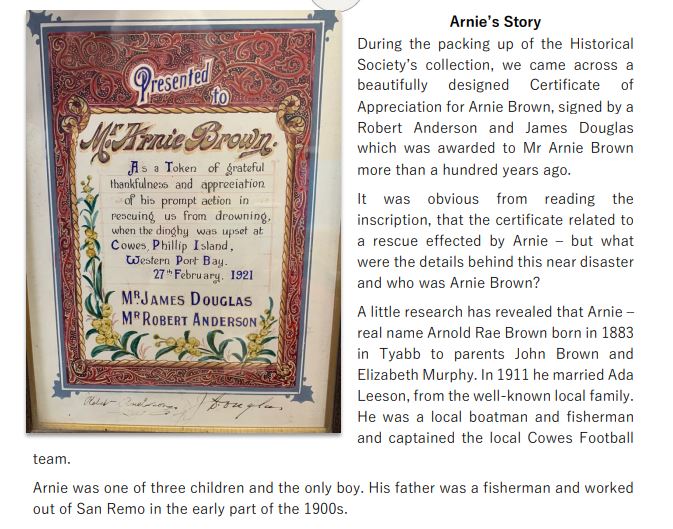 Presented
to
Mr. Arnie Brown.
As a Token of grateful
thankfulness and appreciation
of his prompt action in
rescuing us from drowning,
when the dinghy was upset at
Cowes, Phillip Island,
Western Port Bay.
27th February, 1921
MR JAMES DOUGLAS
MR ROBERT ANDERSON
Robt Anderson. J Douglas
Arnie's Story
During the packing up of the Historical
Society's collection, we came across a
beautifully designed Certificate of
Appreciation for Arnie Brown, signed by a
Robert Anderson and James Douglas
which was awarded to Mr Arnie Brown
more than a hundred years ago.
It was obvious from reading the
inscription, that the certificate related to
a rescue effected by Arnie – but what
were the details behind this near disaster
and who was Arnie Brown?
A little research has revealed that Arnie –
real name Arnold Rae Brown born in 1883
in Tyabb to parents John Brown and
Elizabeth Murphy. In 1911 he married Ada
Leeson, from the well-known local family.
He was a local boatman and fisherman
and captained the local Cowes Football
team.
Arnie was one of three children and the only boy. His father was a fisherman and worked
out of San Remo in the early part of the 1900s.